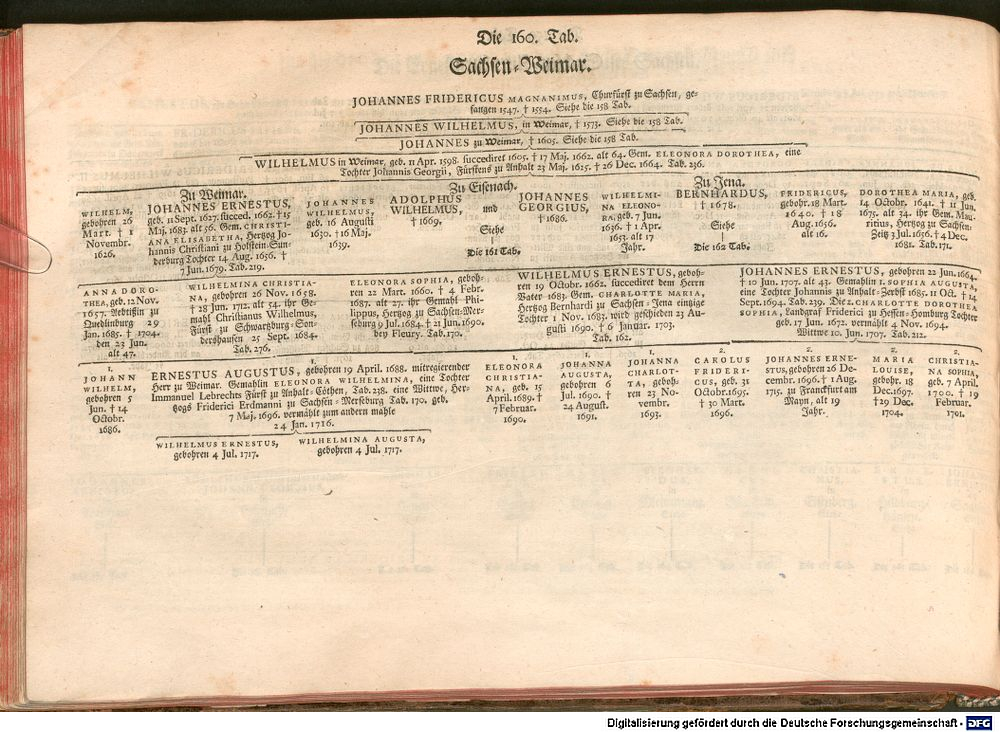 Die 160. Tab.
Sachsen-Weimar.
JOHANNES FRIDERICUS MAGNANIMUS, Churfürst zu Sachsen, ge-
fangen 1547. † 1554. Siehe die 158 Tab.
JOHANNES WILHELMUS, in Weimar, † 1573. Siehe die 158 Tab.
JOHANNES zu Weimar, † 1605. Siehe die 158 Tab.
WILHELMUS in Weimar, geb. 11 Apr. 1598. succediret 1605. † 17 Maj. 1662. alt 64. Gem. ELEONORA DOROTHEA, eine
Tochter Johannis Georgii, Fürstens zu Anhalt 23 Maj. 1625. † 26 Dec. 1664. Tab. 236.
WILHELM,
gebohren 26
Mart. † 1
Novembr.
1626.
Zu Weimar.
JOHANNES ERNESTUS,
geb. 11 Sept. 1627. succed. 1662. † 15
Maj. 1683. alt 56. Gem. CHRISTI-
ANA ELISABETHA, Hertzog Jo-
hannis Christiani zu Holstein-Sun-
derburg Tochter 14 Aug. 1656. †
7 Jun. 1679. Tab. 219.
JOHANNES
WILHELMUS,
geb. 16 Augusti
1630. † 16 Maj.
1639.
Zu Eisenach.
ADOLPHUS
WILHELMUS,
† 1669.
und
Siehe
Die 161 Tab.
JOHANNES
GEORGIUS,
† 1686.
WILHELMI-
NA ELEONO-
RA, geb. 7 Jun.
1636. † 1 Apr.
1653. alt 17
Jahr.
Zu Jena.
BERNHARDUS,
† 1678.
Siehe
Die 162 Tab.
FRIDERICUS,
gebohr. 18 Mart.
1640. † 18
Aug. 1656.
alt 16.
DOROTHEA MARIA, geb.
14 Octobr. 1641. † 11 Jun.
1675. alt 34. ihr Gem. Mau-
ritius, Hertzog zu Sachsen-
Zeitz 3 Jul. 1656. † 4 Dec.
1681. Tab. 171.
ANNA DORO-
THEA, geb. 12 Nov.
1657. Aebtißin zu
Quedlinburg 29
Jan. 1685. † 1704.
den 23 Jun.
alt 47.
WILHELMINA CHRISTIA-
NA, gebohren 26 Nov. 1658.
† 28 Jun. 1712. alt 54. ihr Ge-
mahl Christianus Wilhelmus,
Fürst zu Schwartzburg-Son-
dershausen 25 Sept. 1684.
Tab. 276.
ELEONORA SOPHIA, geboh-
ren 22 Mart. 1660. † 4 Febr.
1687. alt 27. ihr Gemahl Phi-
lippus, Hertzog zu Sachsen-Mer-
seburg 9 Jul. 1684. † 21 Jun. 1690.
bey Fleury. Tab. 170.
WILHELMUS ERNESTUS, geboh-
ren 19 Octobr. 1662. succediret dem Herrn
Vater 1683. Gem. CHARLOTTE MARIA,
Hertzog Bernhardi zu Sachsen-Jena eintzige
Tochter 1 Nov. 1683. wird geschieden 23 Au-
gusti 1690. † 6 Januar. 1703.
Tab. 162.
JOHANNES ERNESTUS, gebohren 22 Jun. 1664.
† 10 Jun. 1707. alt 43. Gemahlin 1. SOPHIA AUGUSTA,
eine Tochter Johannis zu Anhalt-Zerbst 1685. 11 Oct. † 14
Sept. 1694. Tab. 239. Die 2. CHARLOTTE DOROTHEA
SOPHIA, Landgraf Friderici zu Hessen-Homburg Tochter
geb. 17 Jun. 1672. vermählt 4 Nov. 1694.
Wittwe 10. Jun. 1707. Tab. 212.
1.
JOHANN
WILHELM,
gebohren 5
Jun. † 14
Octobr.
1686.
1.
ERNESTUS AUGUSTUS, gebohren 19 April. 1688. mitregierender
Herr zu Weimar. Gemahlin ELEONORA WILHELMINA, eine Tochter
Immanuel Lebrechts Fürst zu Anhalt-Cöthen, Tab. 238. eine Wittwe, Her-
tzogs Friderici Erdmanni zu Sachsen-Merseburg Tab. 170. geb.
7 Maj. 1696. vermählt zum andern mahle
24 Jan. 1716.
1.
ELEONORA
CHRISTIA-
NA, geb. 15
April. 1689. †
7 Februar.
1690.
1.
JOHANNA
AUGUSTA,
gebohren 6
Jul. 1690. †
24 August.
1691.
1.
JOHANNA
CHARLOT-
TA, geboh-
ren 23 No-
vembr.
1693.
2.
CAROLUS
FRIDERI-
CUS, geb. 31
Octobr. 1695.
† 30 Mart.
1696.
2.
JOHANNES ERNE-
STUS, gebohren 26 De-
cembr. 1696. † 1 Aug.
1715. zu Franckfurt am
Mayn, alt 19
Jahr.
2.
MARIA
LOUISE,
gebohr. 18
Dec. 1697.
† 29 Dec.
1704.
2.
CHRISTIA-
NA SOPHIA,
geb. 7 April.
1700. † 19
Februar.
1701.
WILHELMUS ERNESTUS,
gebohren 4 Jul. 1717.
WILHELMINA AUGUSTA,
gebohren 4 Jul. 1717.
Digitalisierung gefördert durch die Deutsche Forschungsgemeinschaft - DFG